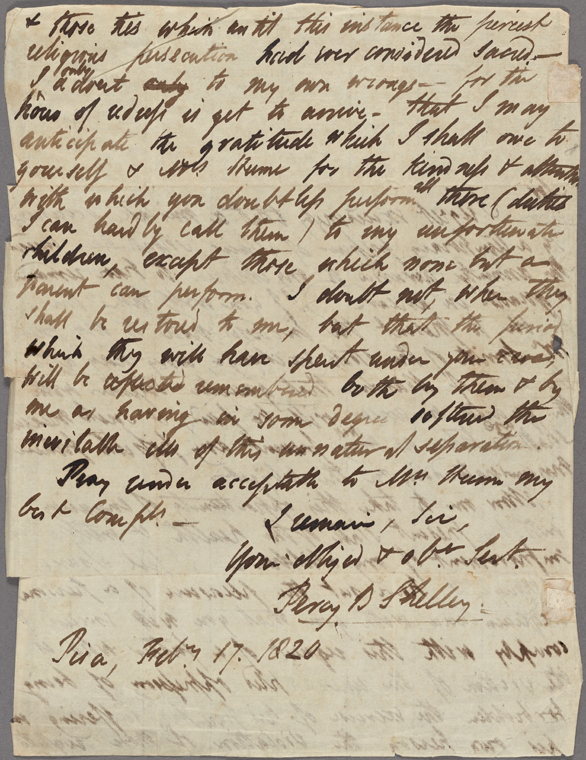 & those ties which until this instance the fiercest
religious persecution had ever considered sacred.—
I only advert to my own wrongs — for the
hour of redress is yet to arrive — that I may
anticipate the gratitude which I shall owe to
yourself & Mrs Hume for the kindness & attention
with which you doubtless perform all those (duties
I can hardly call them) to my unfortunate
children, except those which none but a
parent can perform. I doubt not, when they
shall be restored to me, but that the period
which they will have spent under your
will be remembered both by them & by
me as having in some degree softened the
inevitable ills of this unnatural separation.
Pray render acceptable to Mrs Hume my
best Compts. —
I remain, Sir,
Your obliged & obt Sert.
Percy B Shelley.
Pisa, Feby 17. 1820